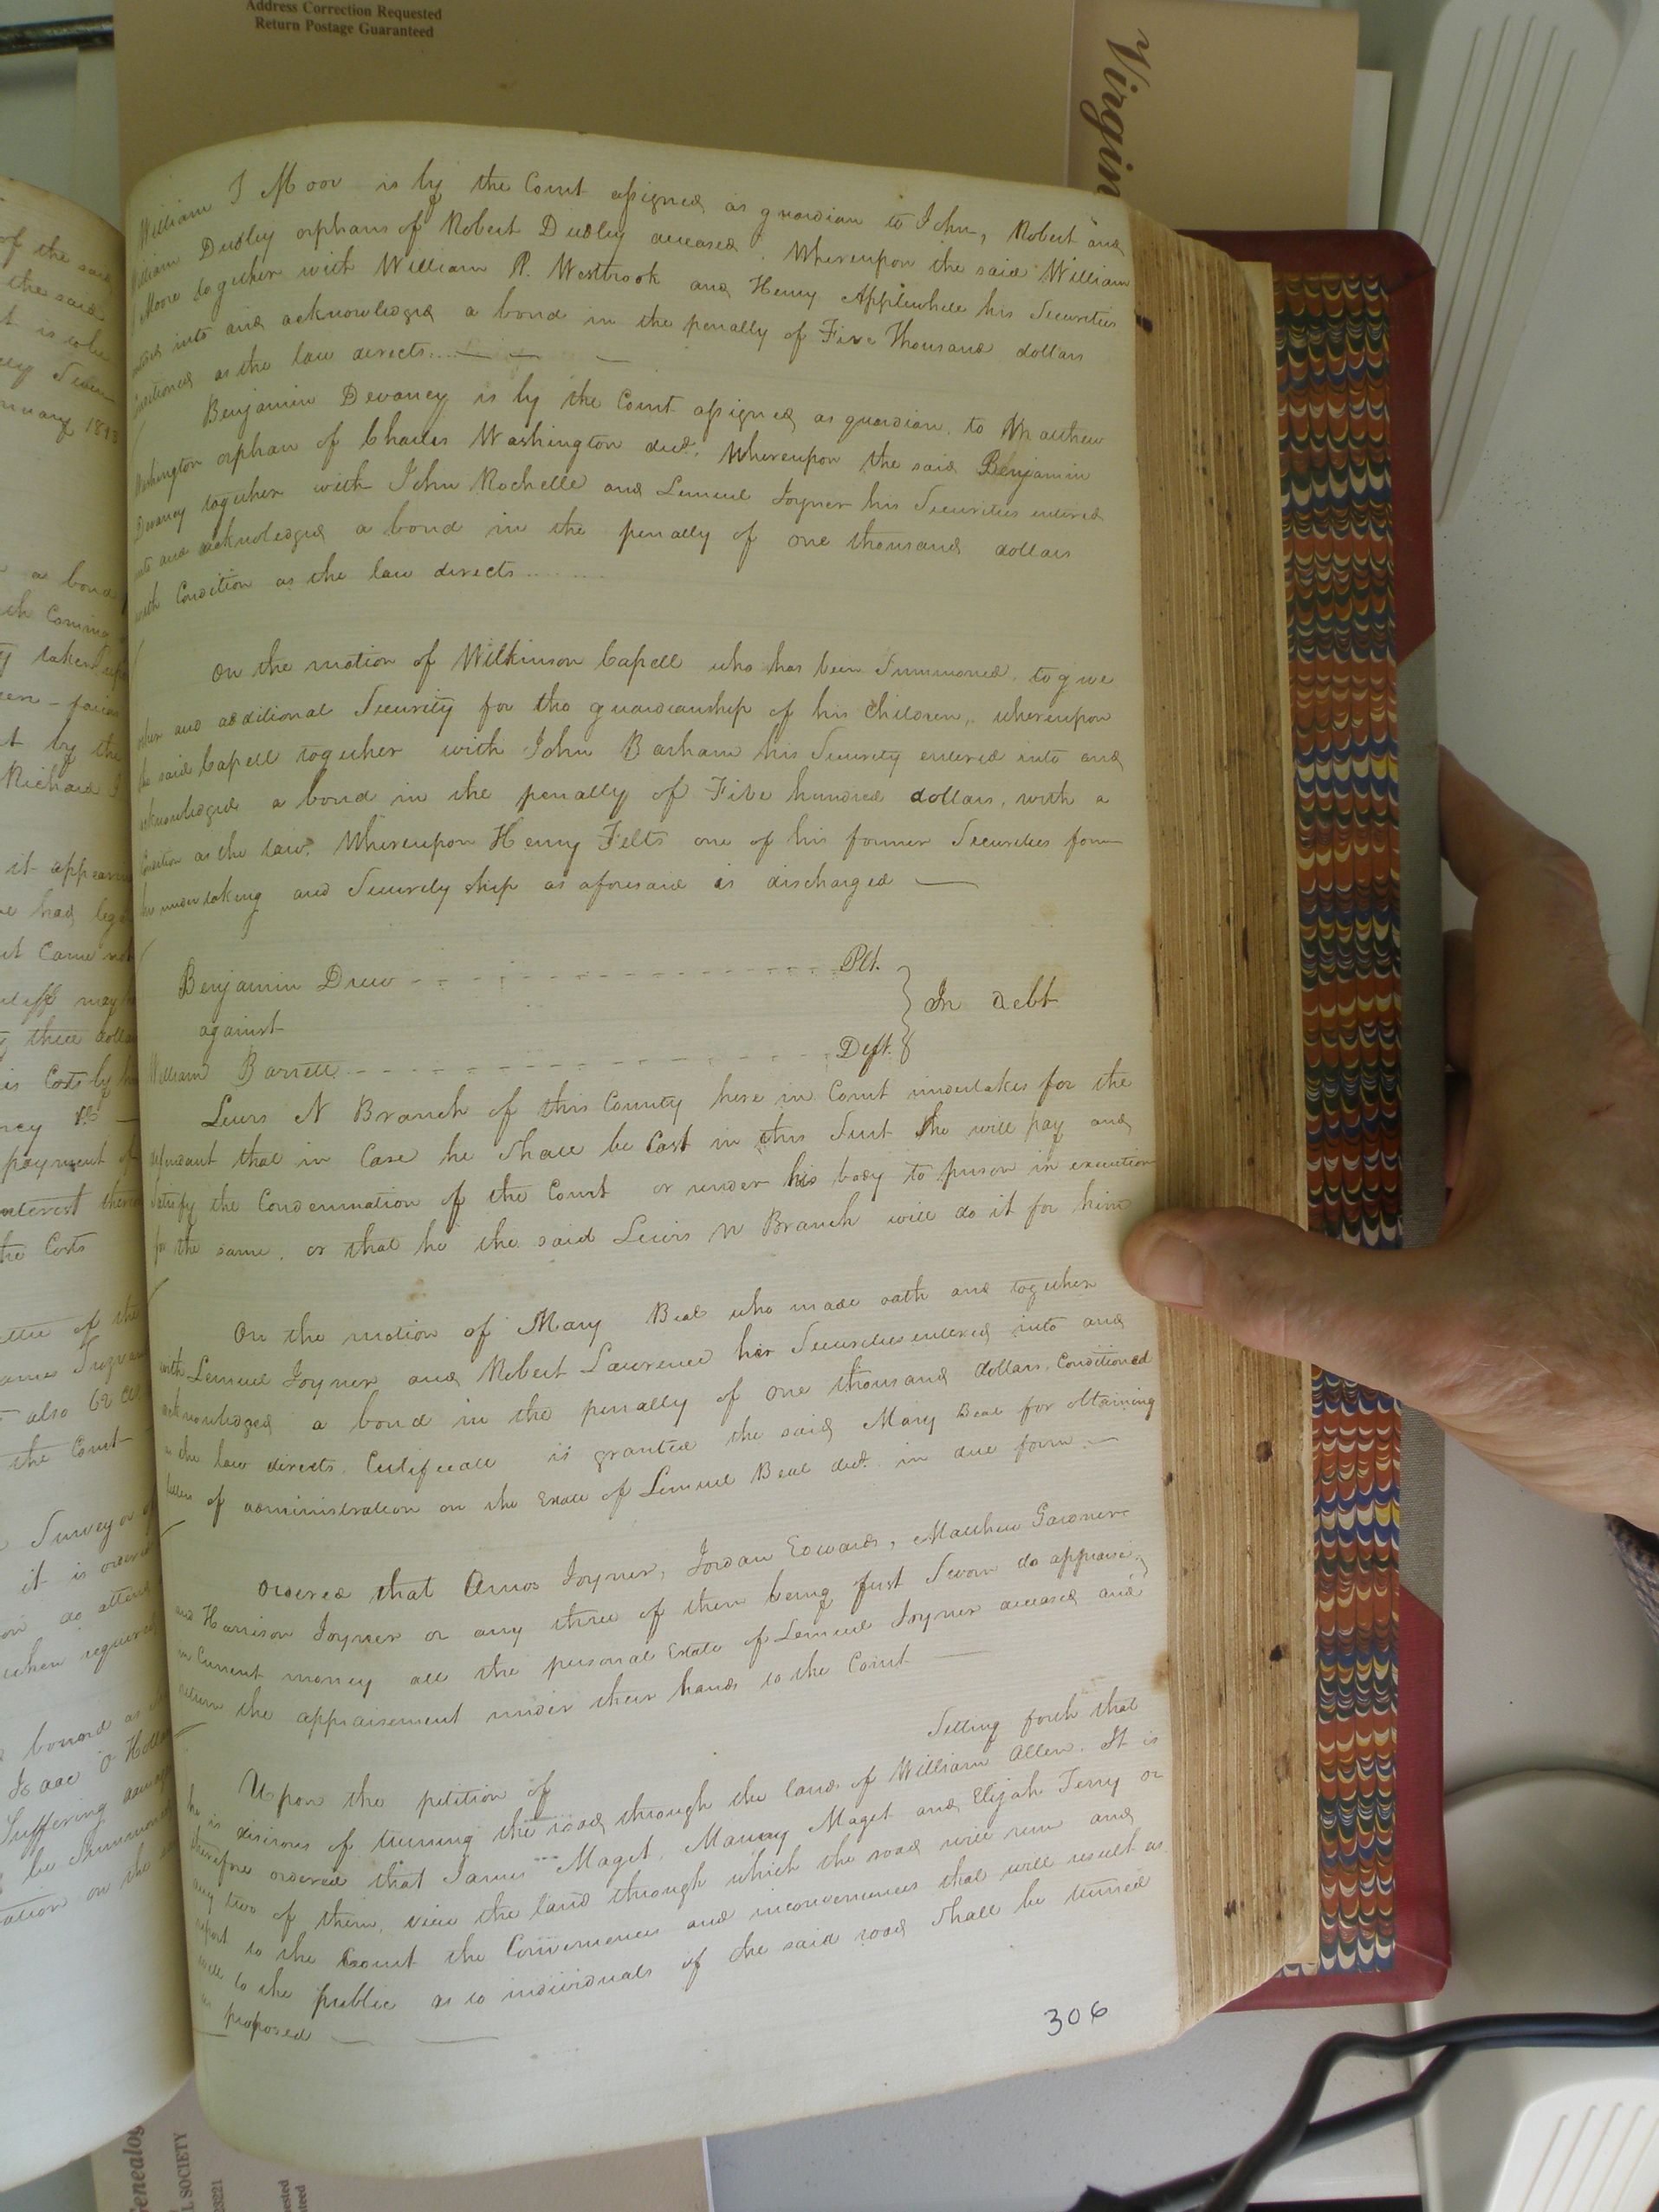 Address Correction Requested
Return Postage Guaranteed
Virgin
of the said
the said
a bond
it appear
payment of
the Costs
also 62
the Court
Surveyor
it is order
do atten
when required
bound as
Isaac
Suffering
be Summoned
William J Moor is by the Court assigned as guardian to John, Robert and
William Dudley orphans of Robert Dudley deceased. Whereupon the said William
J Moore together with William P. Westbrook and Henry Applewhite his Securities
entered into and acknowledged a bond in the penally of Five Thousand dollars
Conditioned as the law directs
Benjamin Devaney is by the Court assigned as guardian to Matthew
Washington orphan of Charles Washington decd. Whereupon the said Benjamin
Devaney together with John Rochelle and Lemuel Joyner his Securities entered
into and acknowledged a bond in the penally of one thousand dollars
with Condition as the law directs
On the motion of Wilkinson Capell who has been Summoned to give
other and additional Security for the guardianship of his Children, whereupon
the said Capell together with John Barham his Security entered into and
acknowledged a bond in the penally of Five hundred dollars, with a
Condition as the law. Whereupon Henry Felts one of his former Securities from
his undertaking and Security ship as aforesaid is discharged
Benjamin Drew Plt.
against } In debt
William Barrett Deft.
Lewis N Branch of this County here in Court undertakes for the
defendant that in Case he Shall be Cast in this Suit he will pay and
Satisfy the Condemnation of the Court or render his body to prison in execution
for the same, or that he the said Lewis N Branch will do it for him
On the motion of Mary Beal who made oath and together
with Lemuel Joyner and Robert Lawrence her Securities entered into and
acknowledged a bond in the penally of one thousand dollars Conditioned
as the law directs. Certificate is granted the said Mary Beal for obtaining
letters of administration on the Estate of Lemuel Beal decd. in due form.
Ordered that Amos Joyner, Jordan Edwards, Matthew Gardner
and Harrison Joyner or any three of them being first Sworn do appraise
in Current money all the personal Estate of Lemuel Joyner deceased and
return the appraisement under their hands to the Court
Upon the petition of Setting forth that
he is disirous of turning the road through the lands of William Allen. It is
therefore ordered that James Maget, Manay Maget and Elijah Terry or
any two of them, view the land through which the road will run and
report to the Court the Conveniences and inconveniences that will result as
well to the public as to individuals if the said road Shall be turned
as proposed
306
Genealog
L SOCIETY
23221